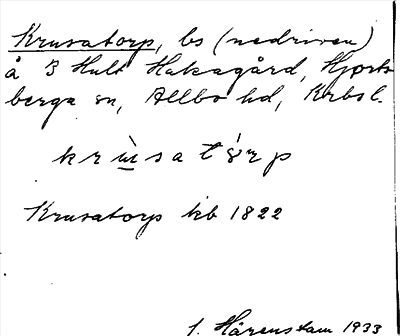 Krusatorp, bs (nedriven)
å 3 Hult Hakagård, Hjorts-
berga sn, Allbo hd, Krbs l.
krùsatórp
Krusatorp kb 1822
1. Hårenstam 1933